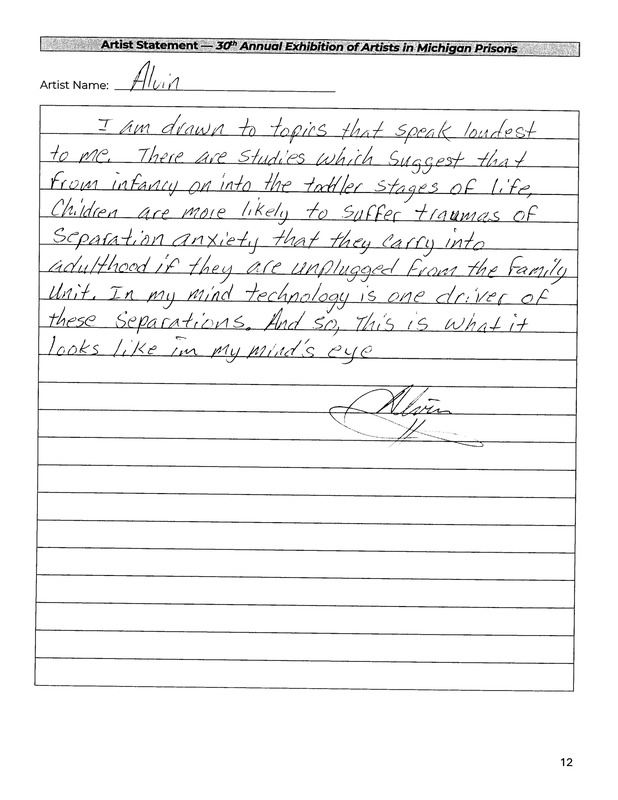 Artist Statement — 30th Annual Exhibition of Artists in Michigan Prisons
Artist Name: Alvin
I am drawn to topics that speak loudest
to me. There are studies which suggest that
from infancy on into the toddler stages of life,
Children are more likely to suffer traumas of
Separation anxiety that they carry into
adulthood if they are unplugged from the family
Unit. In my mind technology is one driver of
these separations. And so, This is what it
looks like in my mind's eye
Alvin
12